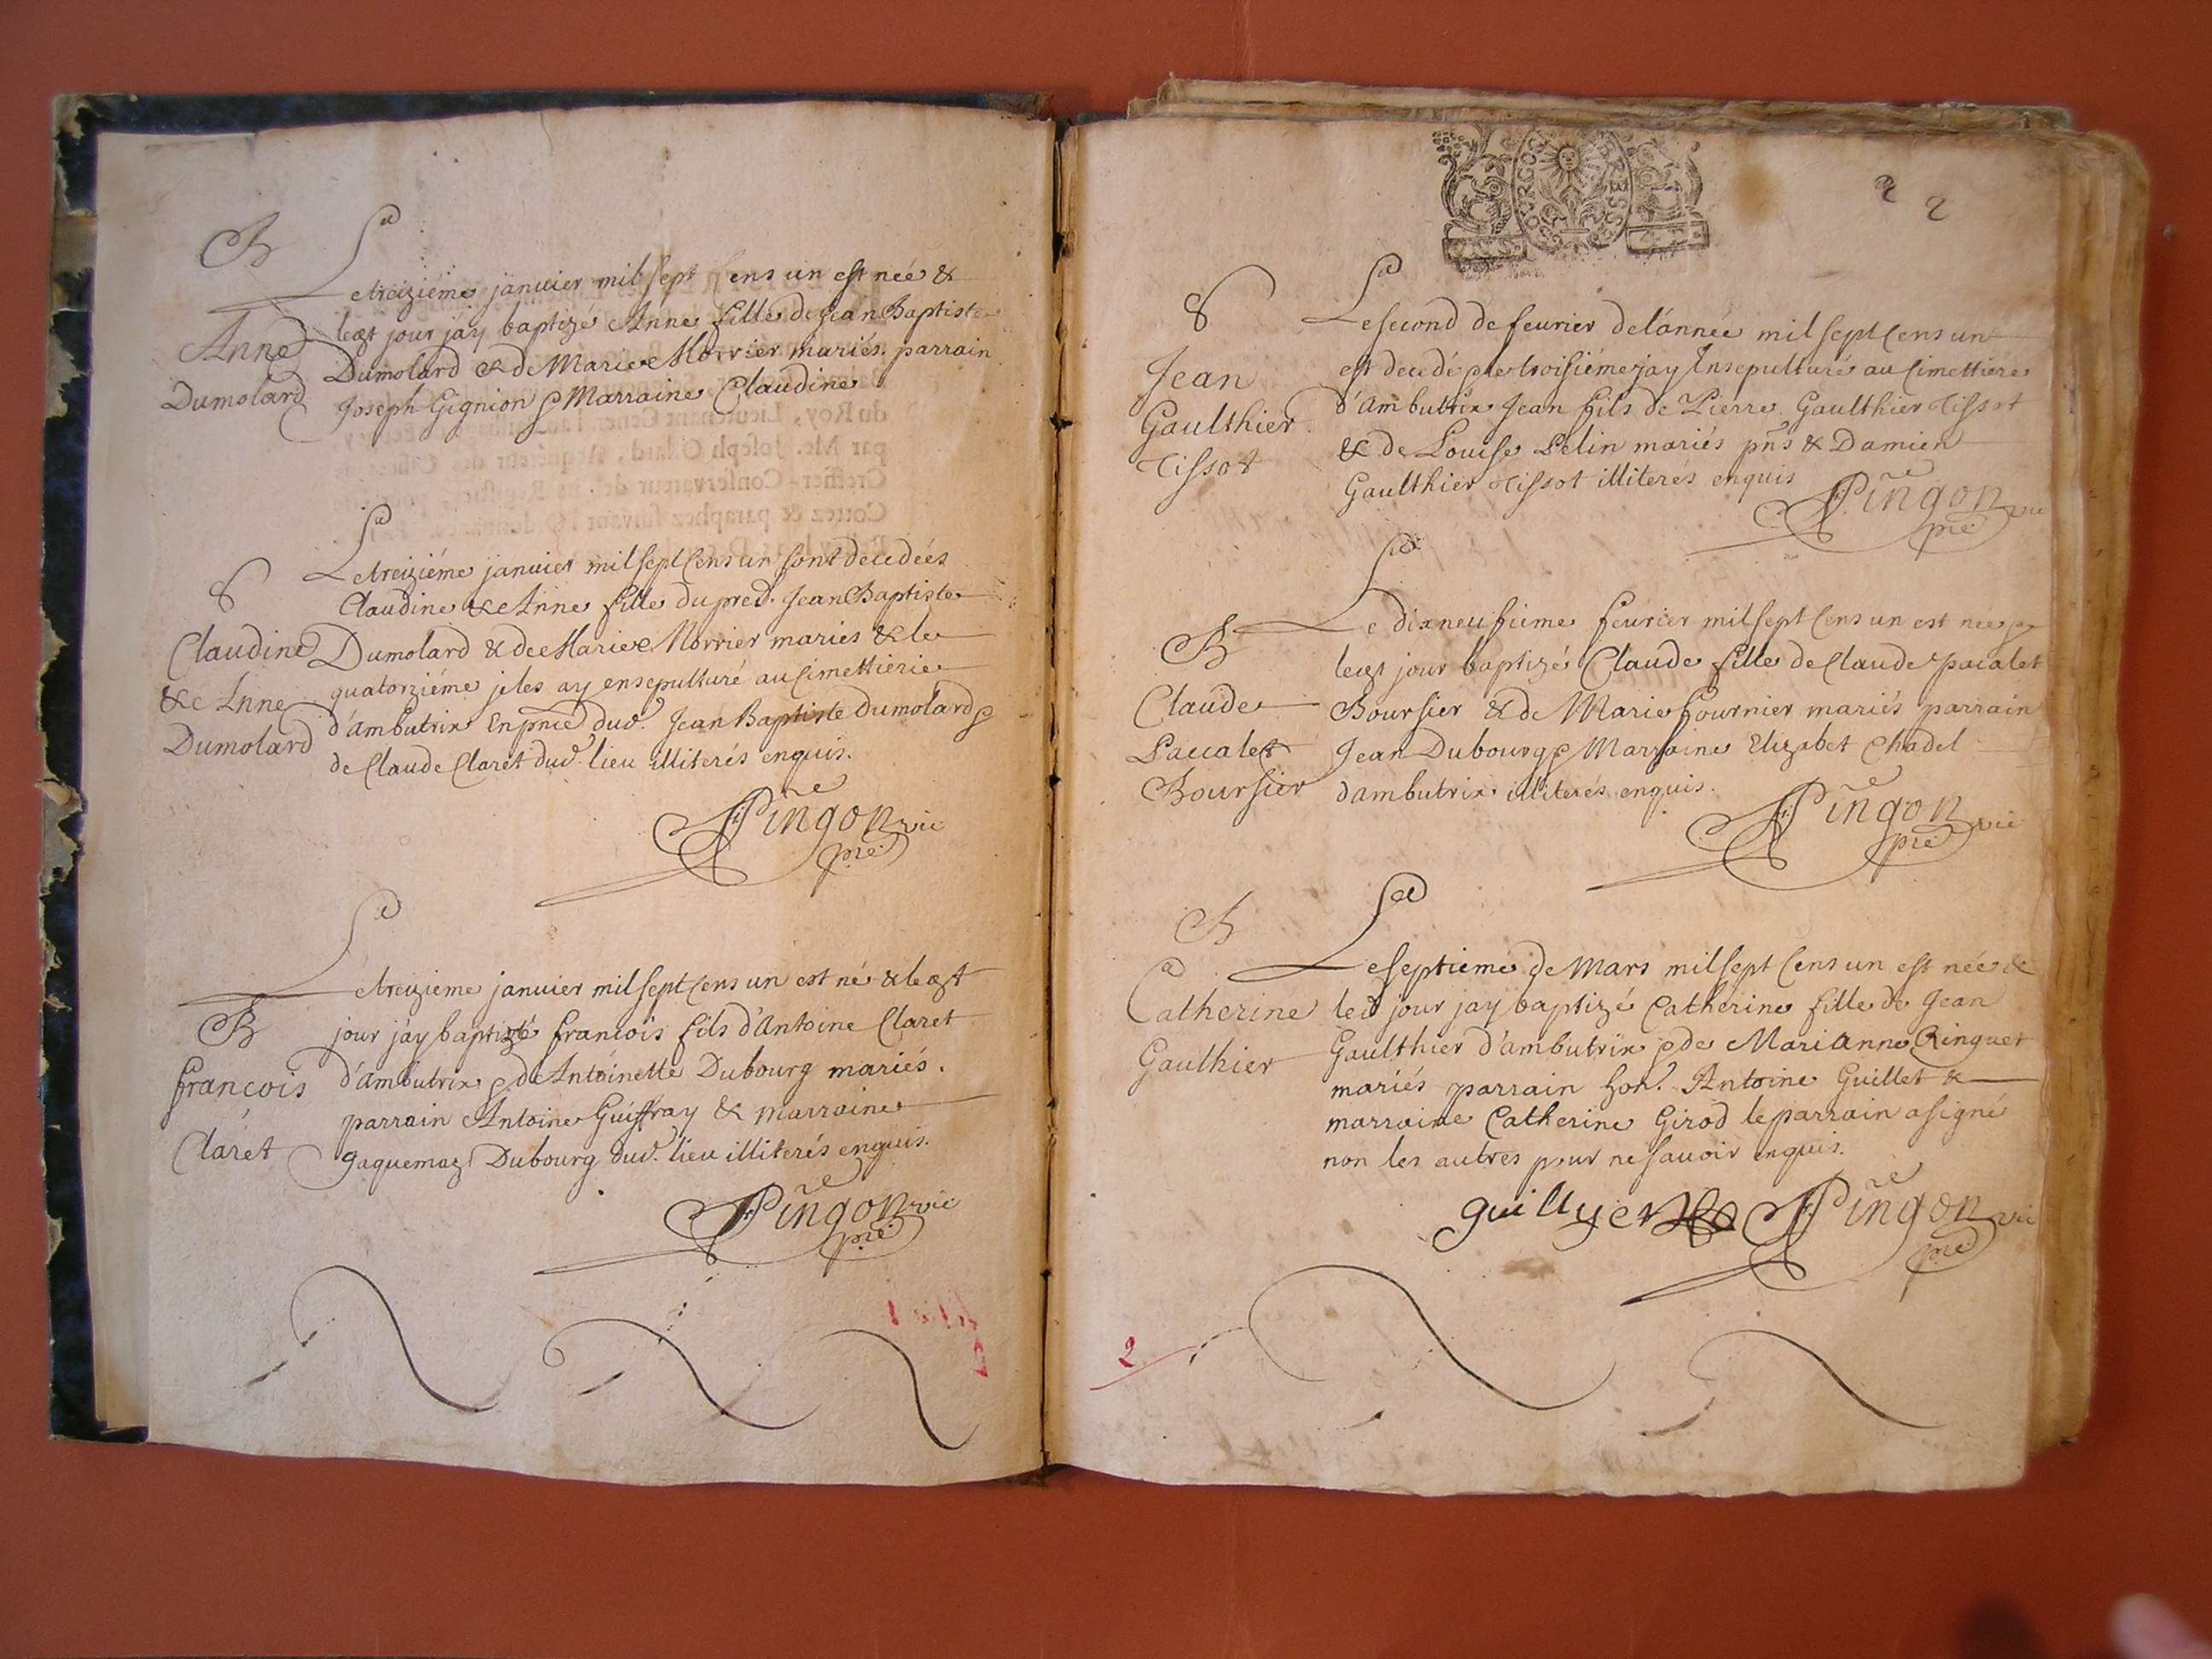 B
Anne
Dumolard
Le treiziéme januier mil sept Cens un est née &
lect jour jay baptizé Anne fille de Jean Baptiste
Dumolard & de Marie Morrier mariés. parrain
Joseph Gignion & Marraine Claudine
S
Claudine
& Anne
Dumolard
Le treiziéme januier mil sept Cens un sont decedées
Claudine & Anne fille du pred. Jean Baptiste
Dumolard & de Marie Morrier mariés & le
quatorziéme je les ay ensepulturé au Cimettierie
d'ambutrix En pnce dud. Jean Baptiste Dumolard &
de Claude Claret dud. lieu illiterés enquis.
Pingon vic
pre
B
francois
Claret
Le treizieme januier mil sept Cens un est né & lect
jour jay baptizé francois fils d'Antoine Claret
d'ambutrix & de Antoinette Dubourg mariés.
parrain Antoine Guiffray & marraine
Jaquemaz Dubourg dud. lieu illiterés enquis.
Pingon vic
pre
BURG BRESSE
2 2
S
Jean
Gaulthier
Tissot
Le second de feurier de l'année mil sept Cens un
est decedé & le troisiéme jay Ensepulturé au Cimettiere
d'Ambutrix Jean fils de Pierre Gaulthier Tissot
& de Louise Pelin mariés pns & Damien
Gaulthier Tissot illiterés enquis
Pingon vic
pre
B
Claude
Paccalet
Boursier
Le dixneufuime feurier mil sept Cens un est née &
lect jour baptizé Claude fille de Claude pacalet
Boursier & de Marie fournier mariés parrain
Jean Dubourg & Marraine Elizabet Chadel
dambutrix illiterés enquis.
Pingon vic
pre
B
Catherine
Gaulthier
Le septieme de Mars mil sept Cens un est née &
led jour jay baptizé Catherine fille de Jean
Gaulthier d'ambutrix & de Marianne Ringuet
mariés parrain hon. Antoine Guillet &
marraine Catherine Girod le parrain a signé
non les autres pour ne sauoir enquis.
guillyet Pingon vic
pre
2